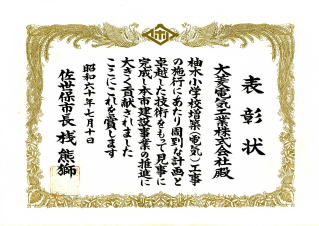 表彰状
大美電気工業株式会社殿
柚木小学校増築(電気)工事
の施行にあたり周到な計画と
卓越した技術をもって見事に
完成し本市建設事業の推進に
大きく貢献されました
ここにこれを賞します
昭和六十年七月十日
佐世保市長 桟熊獅